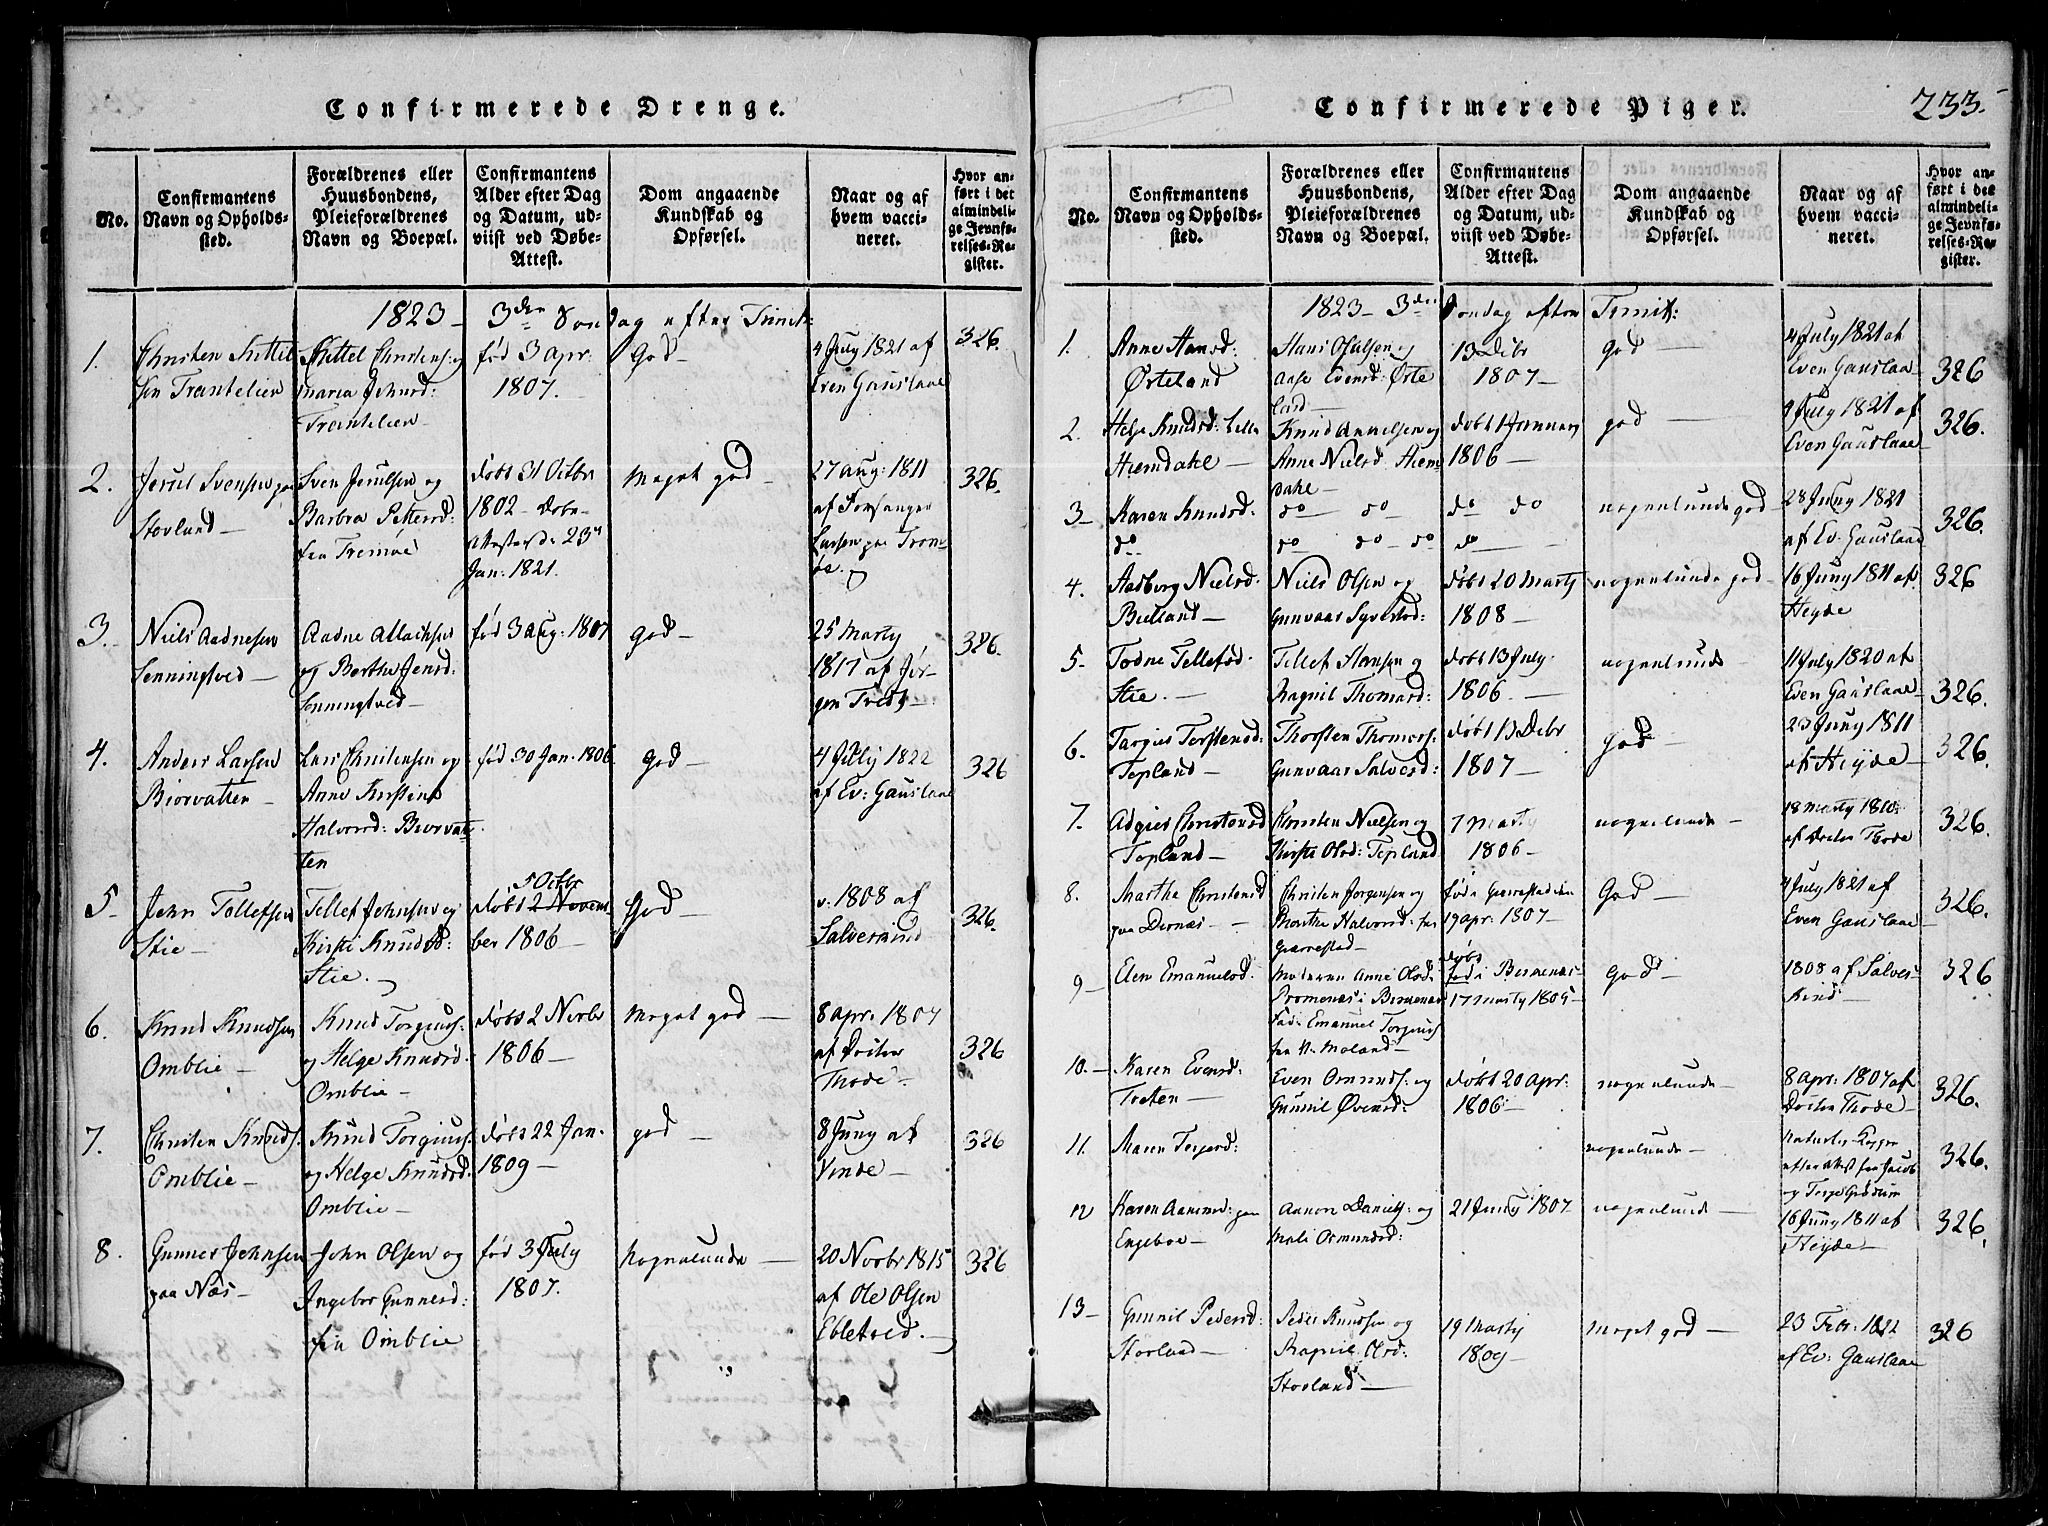 Confirmerede Drenge.
No.
Confirmantens
Navn og Opholds-
sted.
Forældrenes eller
Huusbondens,
Pleieforældrenes
Navn og Boepæl.
Confirmantens
Alder efter Dag
og Datum, ud-
viist ved Døbe-
Attest.
Dom angaaende
Kundskab og
Opførsel.
Naar og af
hvem vacci-
neret.
Hvor an-
ført i det
almindeli-
ge Jevnfø-
relses-Re-
gister.
1823 – 3den Søndag efter Trinit:
1.
Christen Kittel
sen Trantelien
Kittel Christens: og
Maria Johnsd:
Trantelien
fød 3 apr:
1807.
God
4 July 1821 af
Even Gauslaae
326.
2.
Jerul Svensen paa
Stovland –
Sven Jerulsen og
Barbra Pettersd:
fra Tromøe
døbt 31 Octbr
1802 – Døbe-
attest d: 23de
Jan: 1821.
Meget god –
27 aug: 1811
af
Larsen paa Trom-
øe.
326.
3.
Niels Aadnesen
Senningtved –
Aadne Attachsen
og Berthe Jensd:
Senningtved –
fød 3 Aug: 1807
god –
25 Marty
1817 af Jør-
gen Tvedt –
326.
4.
Anders Larsen
Biorvatten –
Lars Christensen og
Anne Kirstine
Halvorsd: Biorvat-
ten
fød 30 Jan: 1806.
god –
4 July 1822
af Ev: Gauslaae
326
5
John Tellefsen
Stie –
Tellef Johnsen og
Kirsti Knudsd:
Stie.
5 Octbr
døbt 2 Novem
ber 1806 –
God –
v: 1808 af
Salvesind
326.
6.
Knud Knudsen
Omblie –
Knud Torgius:
og Helge Knudsd:
Omblie –
døbt 2 Novbr
1806 –
Meget god –
8 apr: 1807
af Doctor
Thode –
326
7.
Christen Knuds:
Omblie –
Knud Torgius:
og Helge Knudsd:
Omblie –
døbt 22 Jan:
1809 –
god –
8 Juny af
Vinde –
326
8.
Gunner Johnsen
paa Næs –
John Olsen og
Ingebor Gunnersd:
fra Omblie
fød 3 July
1807.
Nogenlunde –
20 Novbr 1815
af Ole Olsen
Ebletvedt. –
326
Confirmerede Piger.
233.
No.
Confirmantens
Navn og Opholds-
sted.
Forældrenes eller
Huusbondens,
Pleieforældrenes
Navn og Boepæl.
Confirmantens
Alder efter Dag
og Datum, ud-
viist ved Døbe-
Attest.
Dom angaaende
Kundskab og
Opførsel.
Naar og af
hvem vacci-
neret.
Hvor an-
ført i det
almindeli-
ge Jevnfø-
relses-Re-
gister.
1823 – 3den Søndag efter Trinit:
1.
Anne Hansd:
Ørteland
Hans Olufsen og
Aase Evensd: Ørte
land –
13 Debr
1807 –
god –
4 July 1821 af
Even Gauslaa –
326
2.
Helje Knudsd: Lille
Hiemdahl –
Knud Annelsen og
Anne Nielsd Hiem
dahl –
døbt 1 Januar
1806 –
god –
9 July 1821 af
Even Gauslaae
326.
3 –
Karen Knudsd:
do
do do
do do do
do do
do
nogenlunde god –
28 Juny 1821
af Ev: Gauslaae
326.
4.
Aasborg Nielsd:
Bieland –
Niels Olsen og
Gunvaar Syvertsd:
døbt 20 Marty
1808 –
nogenlunde god –
16 Juny 1811 af
Heyde
326
5.
Todne Tellefsd:
Stie. –
Tellef Hansen og
Ragnil Thomasd:
døbt 13 July
1806. –
nogenlunde –
11 July 1820 af
Even Gauslaae –
326.
6.
Targier Torstensd:
Topland –
Thorsten Thomas:
Gunvaar Salvesd:
døbt 13 Debr
1807 –
God –
23 Juny 1811
af Heyde –
326.
7.
Adgier Christensd
Topland –
Christen Nielsen og
Kirsti Olsd: Topland
7 Marty
1806 –
nogenlunde –
18 Marty 1810
af Doctor Thode
326.
8.
Marthe Christensd
paa Dernæs –
Christen Jorgensen og
Marthe Halvorsd: fra
Gierrestad –
fød i Gierrestad den
19 apr: 1807 –
God –
4 July 1821 af
Even Gauslaae –
326.
9 –
Elen Emanuelsd:
Moderen Anne Olsd:
Promenæs i
Fad: Emanuel Torgius:
fra V. Moland –
døbt
fød i
17 Marty 1805 –
god –
1808 af Salves-
kind –
326
10. –
Karen Evensd:
Tveten –
Even Ormunds: og
Gunnil Øvensd:
døbt 20 Apr:
1806 –
nogenlunde –
8 apr: 1807 af
Doctor Thode –
326.
11.
Maren Terjersd:
nogenlunde –
naturlig Kopper
efter attest fra Jacob
og Terje
326.
12
Karen Aanensd: paa
Engeboe –
Aanon Daniels: og
Mali Ormundsd:
21 Juny 1807
nogenlunde –
16 Juny 1811 af
Heyde –
326.
13 –
Gunnil Pedersd:
Stovland –
Peder Knudsen og
Ragnil Olsd:
Stovland –
19 Marty
1809 –
Meget god –
23 Febr: 1822
af Ev: Gauslaae
326